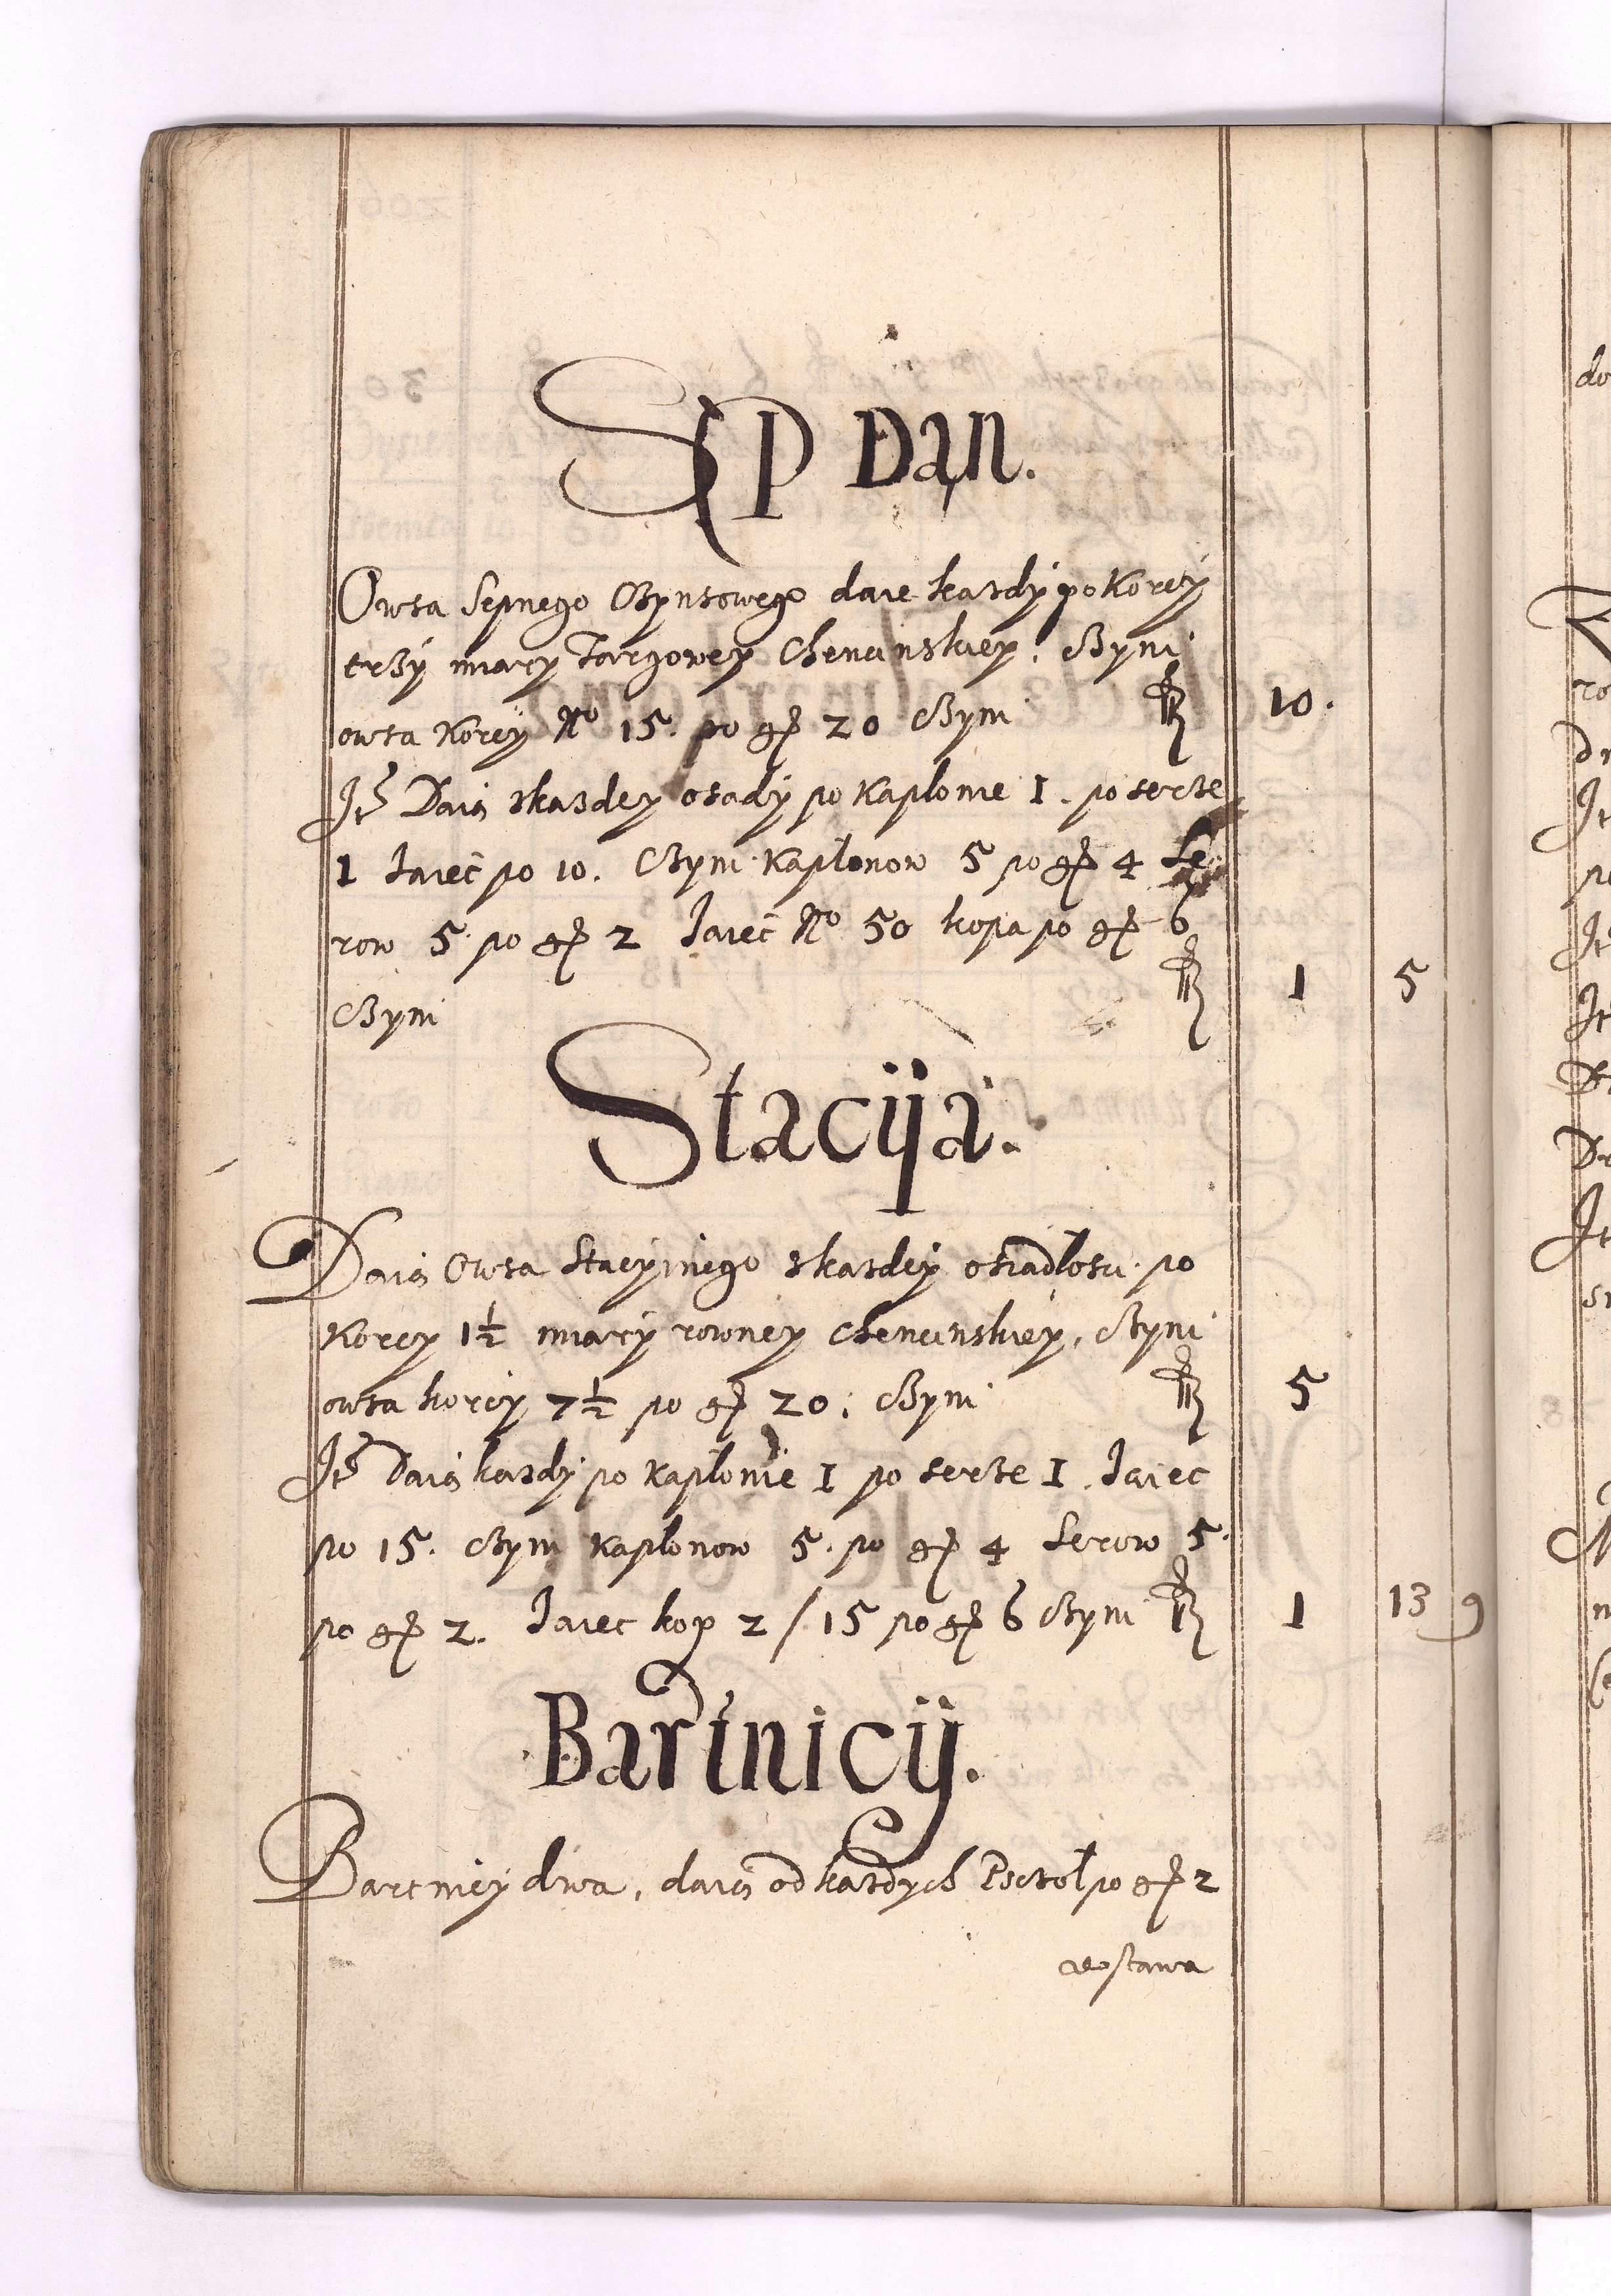 Sęp Dąn.
Owsa Sepnego Czynsowego daie kazdy po Korcy
trzy miary Targowey Chencinskiey. Czyni
owsa Korcy No 15. po gr 20 Czyni fl 10.
Itm Daią zkazdey osady po Kapłonie 1. po serze
1 Jaiec po 10. Czyni Kapłonow 5 po gr 4 Se
row 5 po gr 2 Jaiec No 50 kopa po gr 6
Czyni fl 1 5
Stacija.
Daią Owsa Stacyinego zkazdey osiadłosci po
Korcy 1½ miary rowney Chencinskiey, Czyni
owsa korcy 7½ po gr 20. Czyni fl 5
Itm Daią kazdy po Kapłonie 1 po serze 1. Jaiec
po 15. Czyni Kapłonow 5. po gr 4 Serow 5.
po gr 2. Jaiec kop 2/15 po gr 6 Czyni fl 1 13 9
Bartnicy.
Bartnicy dwa, daią od kazdych Pszczoł po gr 2